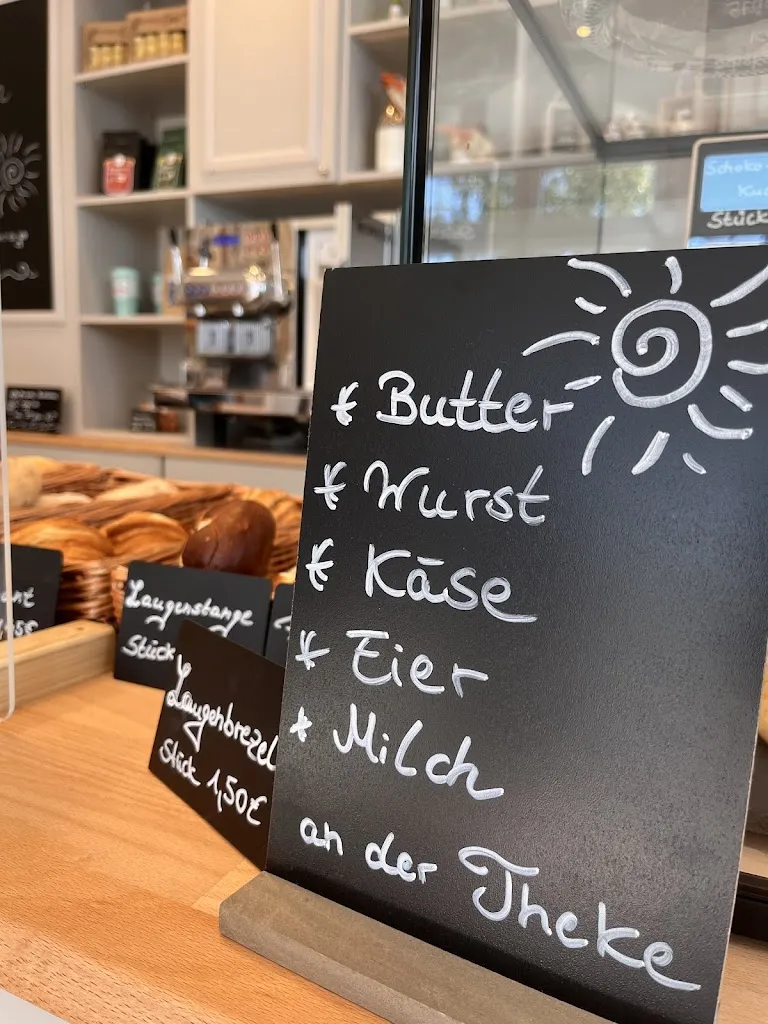 * Butter
* Wurst
* Käse
* Eier
* Milch
an der Theke
Laugenstange
Stück
Laugenbrezel
Stück 1,50€
Stück